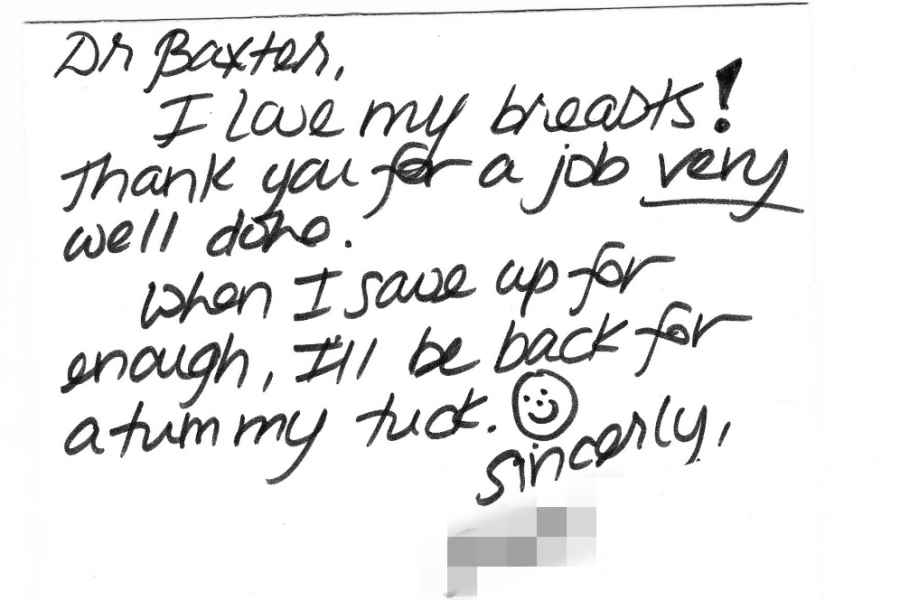 Dr Baxter,
I love my breasts!
Thank you for a job very
well done.
When I save up for
enough, I'll be back for
a tummy tuck.
sincerly,